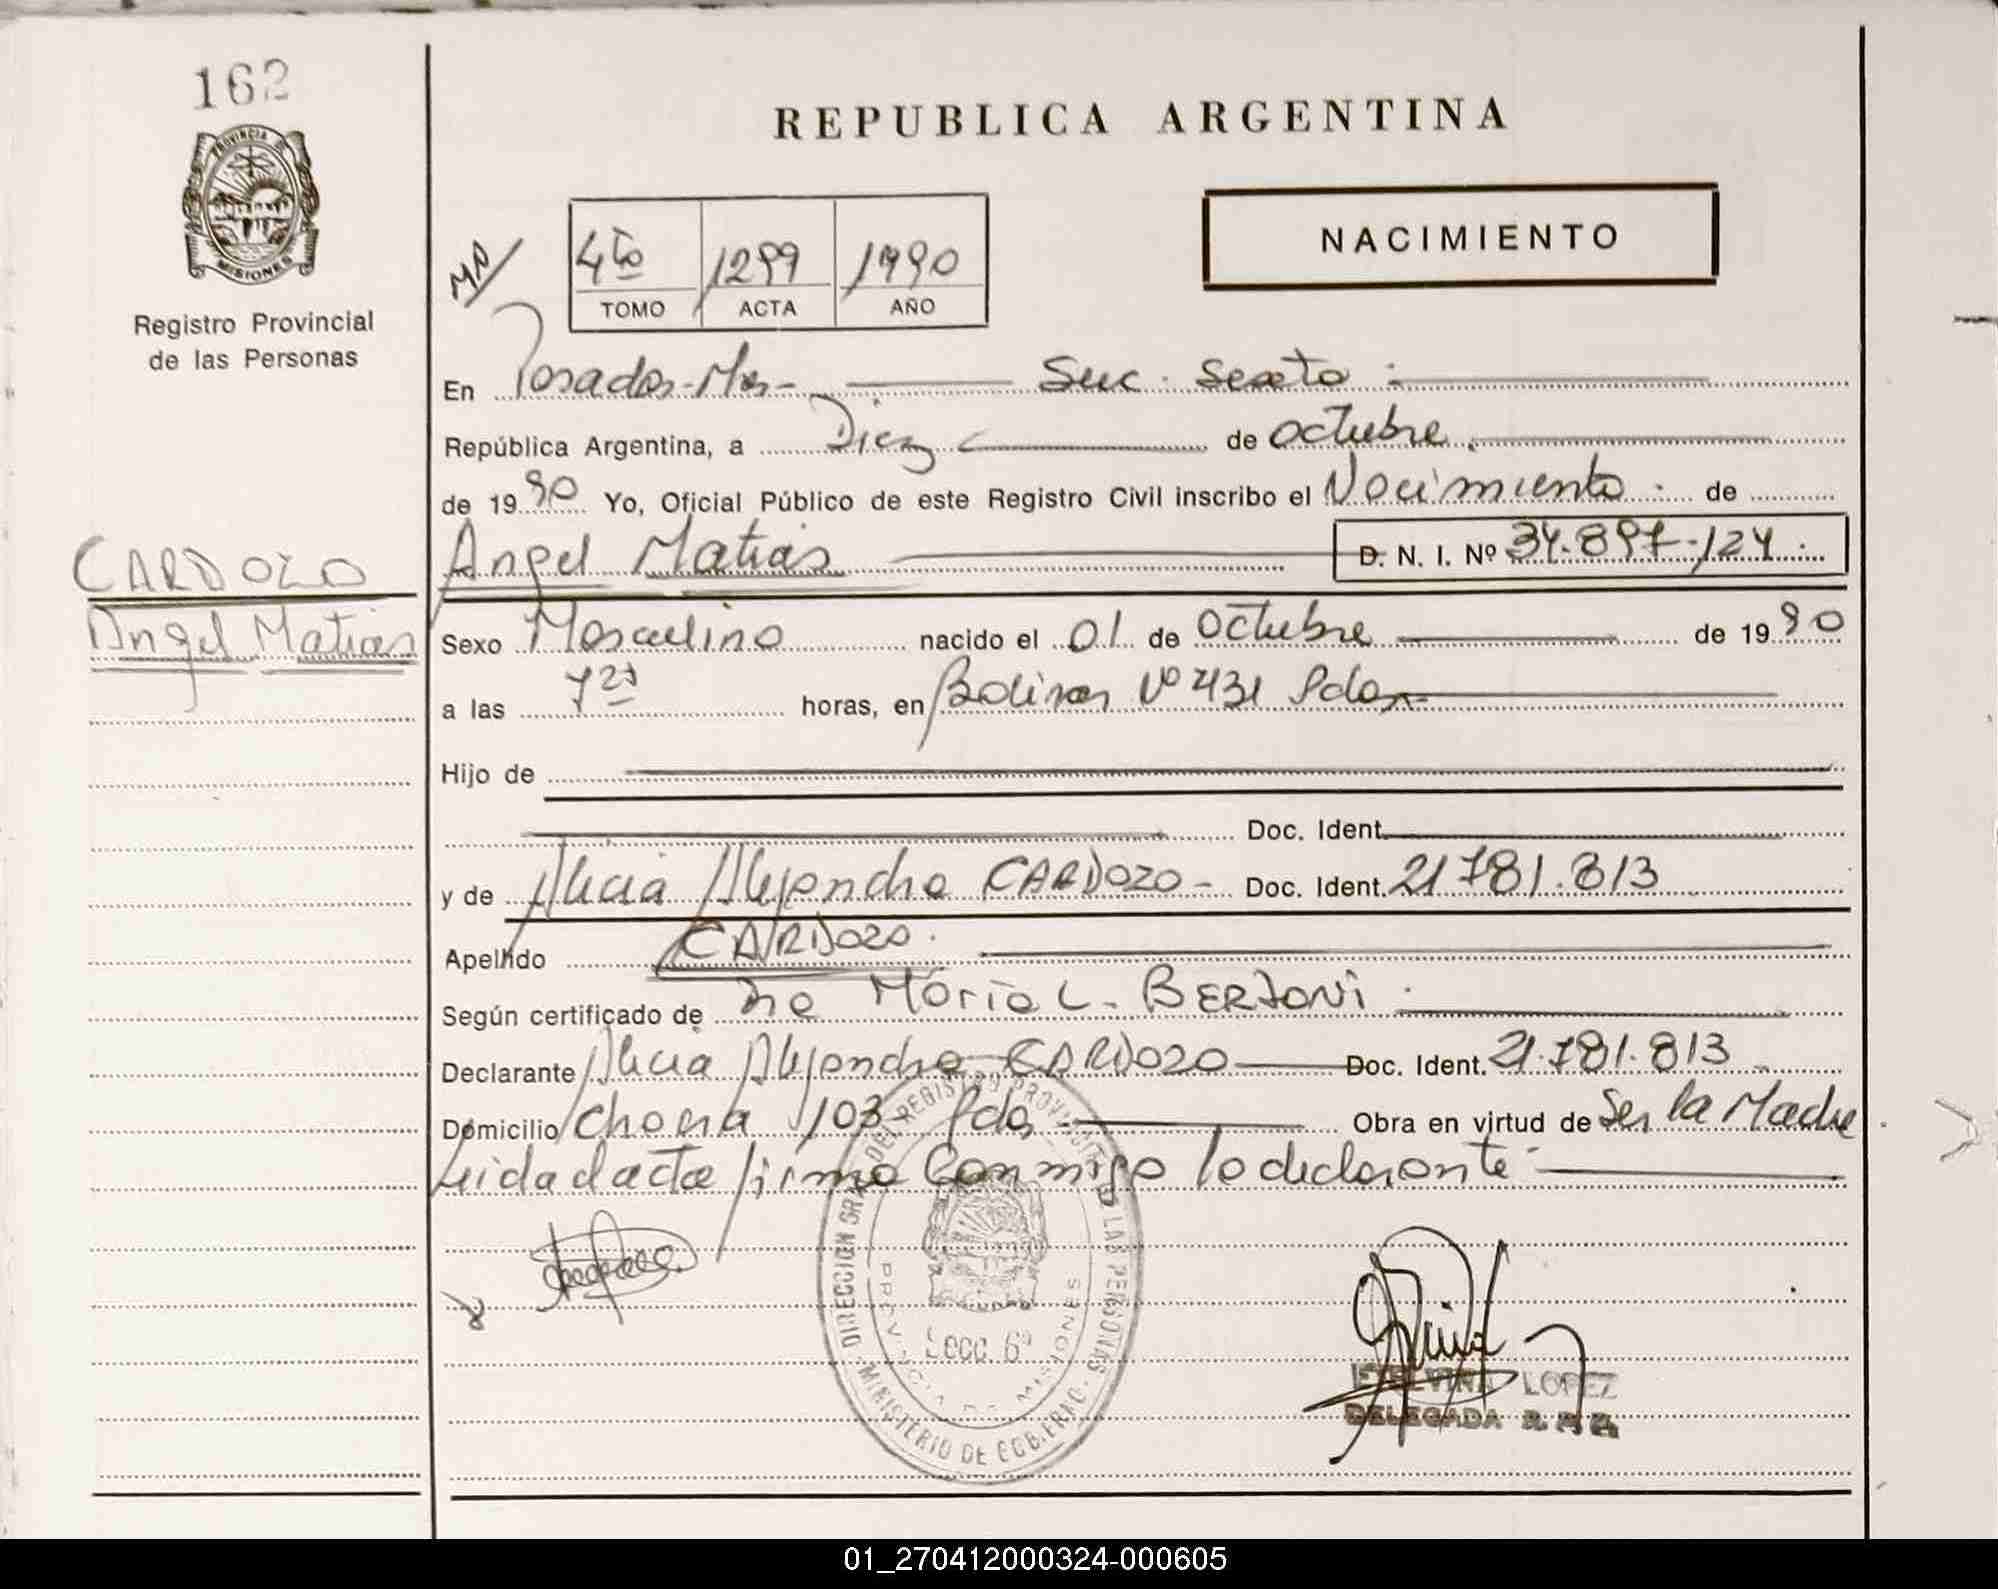 162
PROVINCIA
MISIONES
Registro Provincial
de las Personas
REPUBLICA ARGENTINA
NACIMIENTO
4to 1299 1990
TOMO ACTA AÑO
En Posadas-Mnes- Secc. Sexta
República Argentina, a Diez de octubre
de 1990 Yo, Oficial Público de este Registro Civil inscribo el Nacimiento de
CARDOZO
Angel Matias
Angel Matias D. N. I. Nº 34.897.124
Sexo Masculino nacido el 01 de octubre de 1990
a las 7 25 horas, en Bolivar Nº 431 Pdas
Hijo de
Doc. Ident.
y de Alicia Alejandra CARDOZO- Doc. Ident. 21.781.813
Apellido CARDOZO.
Según certificado de Dra Maria L. BERTONI
Declarante Alicia Alejandra CARDOZO Doc. Ident. 21.781.813
Domicilio 103 Pdas Obra en virtud de Ser la Madre
Leida el acta firma conmigo la declarante
DIRECCION GRAL. DEL REGISTRO PROV. DE LAS PERSONAS
MINISTERIO DE GOBIERNO
PROVINCIA DE MISIONES
Secc. 6ª
ETELVINA LOPEZ
DELEGADA R.P.P.
01_270412000324-000605